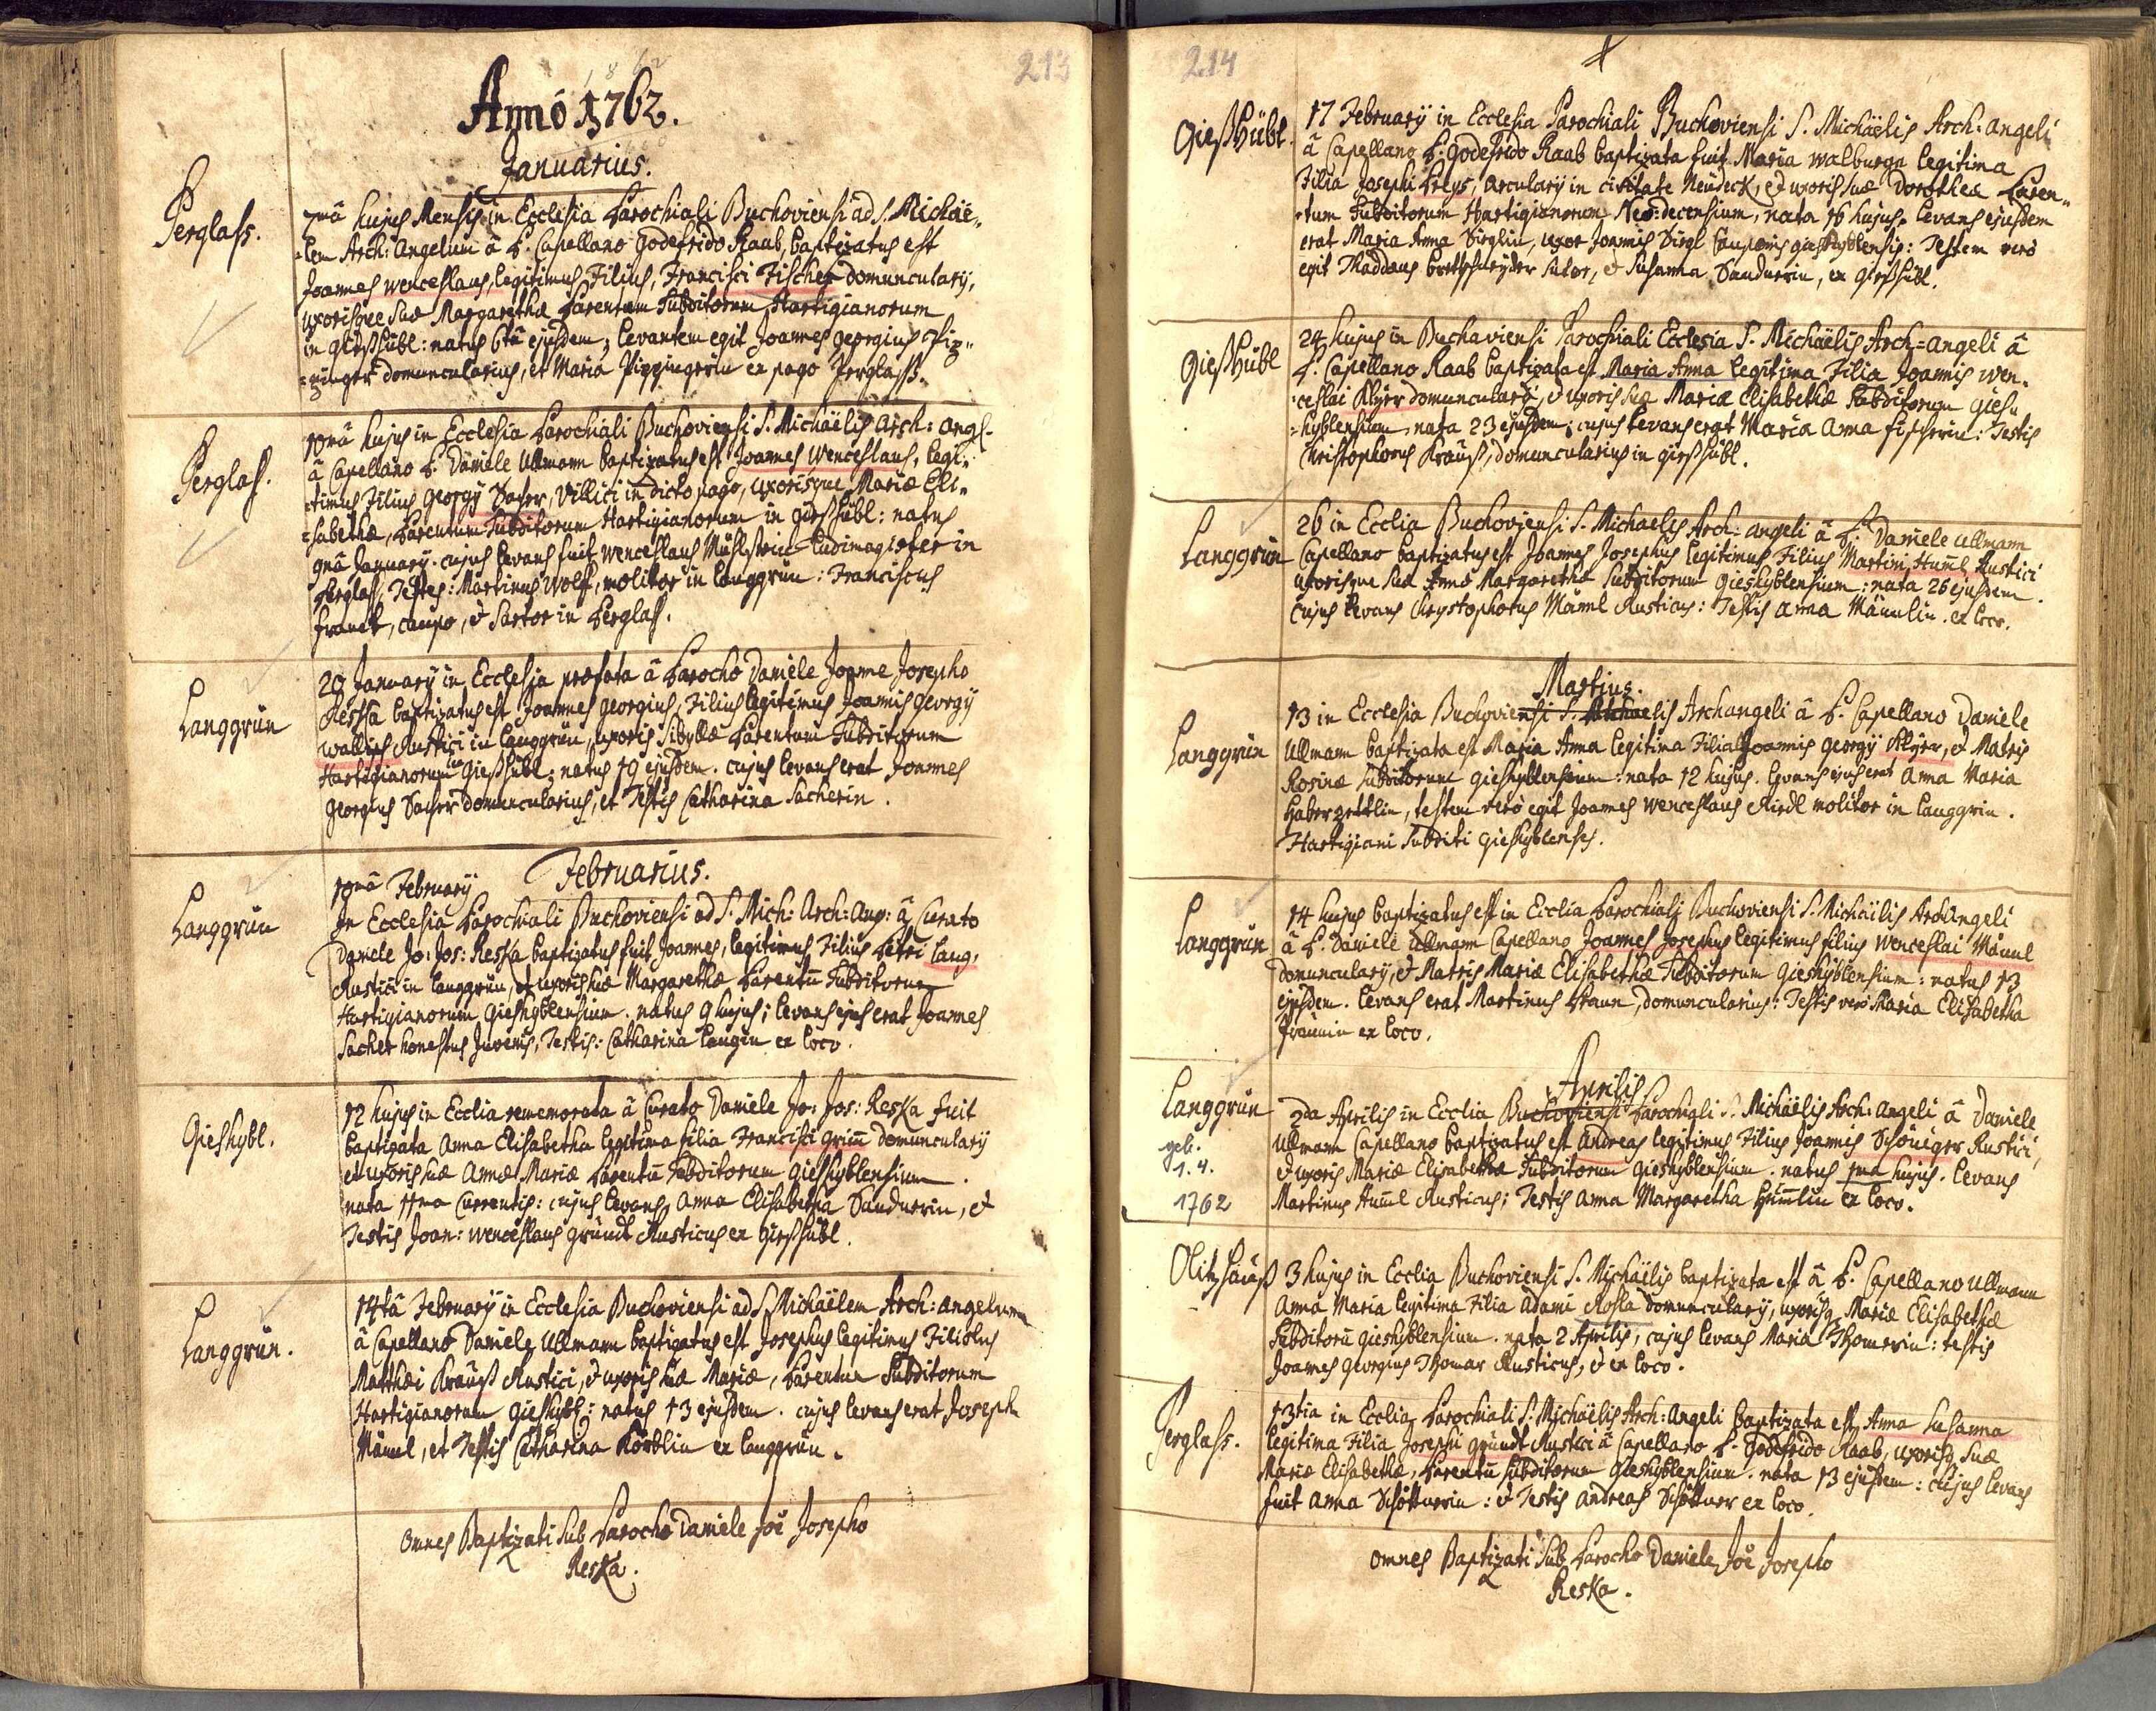 213
Annó 1762.
Januarius.
Perglass.
7mâ hujus Mensis in Ecclesia Parochiali Buchoviensi ad S. Michaë„
=lem Arch: Angelum â P. Capellano Godefrido Raab, baptizatus est
Joannes Wenceslaus, legitimus Filius, Francisci Fischer domuncularÿ,
uxorisque suæ Margarethæ Parentum Subditorum Hartigianorum
in Giesshübl: natus 6tâ ejusdem; Levantem egit Joannes Georgius Piz„
=zinger domuncularius, et Maria Pizzingerin ex pago Perglass.
Perglass.
10mâ hujus in Ecclesia Parochiali Buchoviensi S. Michaëlis Arch: Angl.
â Capellano P. Daniele Ullmann baptizatus est Joannes Wenceslaus, legi„
=timus Filius Georgÿ Sacher, Villici in dicto pago, uxorisque Mariæ Eli„
=sabethæ, Parentum Subditorum Hartigianorum in Giesshübl: natus
9nâ Januarÿ. cujus Levans fuit Wenceslaus Mühlstein Ludimagister in
Perglass, Testes: Martinus Wolff, molitor in Langgrün: Franciscus
, caupo, & Sartor in Perglass.
Langgrün
20 Januarÿ in Ecclesia præfata â Parocho Daniele Joanne Josepho
Reska baptizatus est Joannes Georgius, Filius legitimus Joannis Georgÿ
Wallisch Rustici in Langgrün, uxoris Sibyllæ Parentum Subditorum
Hartigianorum in Giesshübl: natus 19 ejusdem. cujus Levans erat Joannes
Georgius Sacher domuncularius, et Testis Catharina Sacherin.
Februarius.
Langgrün
10mâ Februarÿ
In Ecclesia Parochiali Buchoviensi ad S. Mich: Arch: Ang: â Curato
Daniele Jo: Jos: Reska baptizatus fuit Joannes, legitimus Filius Petri Lang,
Rustici in Langgrün, et uxoris suæ Margarethæ Parentũ Subditorum
Hartigianorum Gieshyblensium. natus 9 hujus; Levans ejus erat Joannes
Sacher honestus Juvenis, Testis: Catharina Langin ex loco.
Gieshybl.
12 hujus in Ecclia rememorata â Curato Daniele Jo: Jos: Reska fuit
baptizata Anna Elisabetha legitima filia Francisci Grim̃ domuncularÿ
et uxoris suæ Annæ Mariæ Parentũ Subditorum Gieshyblensium.
nata 11ma Currentis: cujus Levans Anna Elisabetha Sandnerin, &
Testis Joan: Wenceslaus Gründl Rusticus ex Giesshübl.
Langgrün.
14tâ Februarÿ in Ecclesia Buchoviensi ad S. Michaëlem Arch: Angelum
â Capellano Daniele Ullmann baptizatus est Josephus legitimus Filiolus
Matthæi Krauss Rustici, & uxoris suæ Mariæ, Parentum Subditorum
Hartigianorum Gieshybl: natus 13 ejusdem. cujus Levans erat Joseph
Männl, et Testis Catharina Körblin ex Langgrün.
Omnes Baptizati sub Parocho Daniele Joẽ Josepho
Reska.
214
Giesshübl.
17 Februarÿ in Ecclesia Parochiali Buchoviensi S. Michaëlis Arch: Angeli
â Capellano P. Godefrido Raab baptizata fuit Maria Walburga legitima
Filia Josephi Preys, Arcularÿ in civitate Neudeck, & uxoris suæ Dorotheæ Paren„
=tum Subditorum Hartigianorum Neo=decensium, nata 16 hujus. Levans ejusdem
erat Maria Anna Sirglin, uxor Joannis Sirgl Cauponis Gieshyblensis: Testem vero
egit Thaddæus Brettschneyder Sutor, & Susanna Sandnerin, ex Giesshübl.
Giesshübl
24 hujus in Buchaviensi Parochiali Ecclesia S. Michaëlis Arch=angeli â
P. Capellano Raab baptizata est Maria Anna legitima Filia Joannis Wen„
=ceslai Klÿer domuncularÿ, & uxoris suæ Mariæ Elisabethæ Subditorum Gies„
=hyblensium, nata 23 ejusdem; cujus Levans erat Maria Anna Fischerin: Testis
Christophorus Krauss, domuncularius in Giesshübl.
Langgrün
26 in Ecclia Buchoviensi S. Michaelis Arch: Angeli â P. Daniele Ullmann
Capellano baptizatus est Joannes Josephus legitimus Filius Martini Hum̃l Rustici
uxorisque suæ Annæ Margarethæ Subditorum Gieshyblensium: nata 26 ejusdem.
Cujus Levans Chrystophorus Männl Rusticus: Testis Anna Männlin. ex loco.
Martius.
Langgrün
13 in Ecclesia Buchoviensi S. Michaelis Archangeli â P. Capellano Daniele
Ullmann baptizata est Maria Anna legitima Filia Joannis Georgÿ Klÿer, & Matris
Rosinæ Subditorum Gieshyblensium: nata 12 hujus. Levans ejus erat Anna Maria
Haberzettlin, testem vero egit Joannes Wenceslaus Riedl molitor in Langgrün.
Hartigiani Subditi Gieshyblenses.
Langgrün
14 hujus baptizatus est in Ecclia Parochiali Buchoviensi S. Michaëlis ArchAngeli
â P. Daniele Ullmann Capellano Joannes Josephus legitimus filius Wenceslai Männl
domuncularÿ, & Matris Mariæ Elisabethæ Subditorum Gieshyblensium: natus 13
ejusdem. Levans erat Martinus Braun, domuncularius: Testis vero Maria Elisabetha
Braunin ex loco.
Aprilis
Langgrün
geb.
1. 4.
1762
2da Aprilis in Ecclia Buchoviensi Parochiali S. Michaëlis Arch: Angeli â Daniele
Ullmann Capellano baptizatus est Andreas legitimus Filius Joannis Schöniger Rustici,
& uxoris Mariæ Elisabethæ Subditorum Gieshyblensium. natus 1ma hujus. Levans
Martinus Hum̃l Rusticus; Testis Anna Margaretha Hum̃lin ex loco.
Olitzhauss
3 hujus in Ecclia Buchoviensi S. Michaëlis baptizata est â P. Capellano Ullmann
Anna Maria legitima Filia Adami Rosla domuncularÿ, uxorisq Mariæ Elisabethæ
Subditorũ Gieshyblensium. nata 2 Aprilis, cujus Levans Maria Thomerin: testis
Joannes Georgius Thomar Rusticus, & ex loco.
Perglass.
13tia in Ecclia Parochiali S. Michaëlis Arch: Angeli baptizata est Anna Susanna
legitima Filia Josephi Gründl Rustici â Capellano P. Godefrido Raab, uxorisq suæ
Mariæ Elisabethæ, Parentũ subditorum Gieshyblensium. nata 13 ejusdem: cujus Levans
fuit Anna Schöttnerin: & Testis Andreas Schöttner ex loco.
Omnes Baptizati sub Parocho Daniele Joẽ Josepho
Reska.